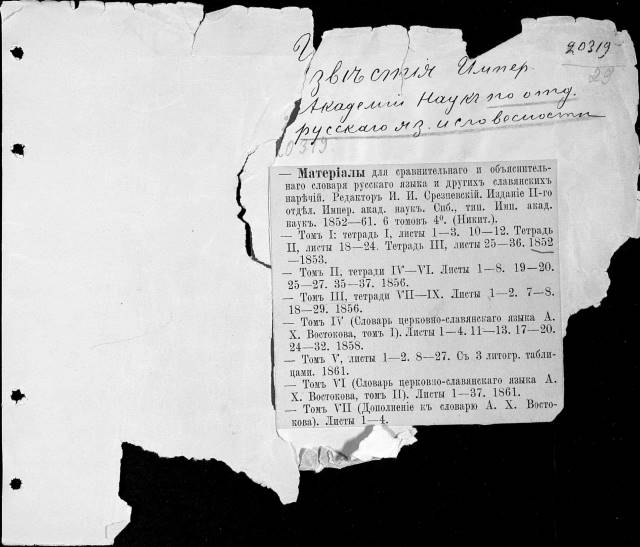 20319
Извѣстія Импер.
Академіи Наукъ по отд.
русскаго яз. и словесности
29
20319
— Матеріалы для сравнительнаго и объяснитель-
наго словаря русскаго языка и другихъ славянскихъ
нарѣчій. Редакторъ И. И. Срезневскій. Изданіе II-го
отдѣл. Импер. акад. наукъ. Спб., тип. Имп. акад.
наукъ. 1852—61. 6 томовъ 4⁰. (Никит.).
— Томъ I: тетрадь I, листы 1—3. 10—12. Тетрадь
II, листы 18—24. Тетрадь III, листы 25—36. 1852
—1853.
— Томъ II, тетради IV—VI. Листы 1—8. 19—20.
25—27. 35—37. 1856.
— Томъ III, тетради VII—IX. Листы 1—2. 7—8.
18—29. 1856.
— Томъ IV (Словарь церковно-славянскаго языка А.
Х. Востокова, томъ I). Листы 1—4. 11—13. 17—20.
24—32. 1858.
— Томъ V, листы 1—2. 8—27. Съ 3 литогр. табли-
цами. 1861.
— Томъ VI (Словарь церковно-славянскаго языка А.
Х. Востокова, томъ II). Листы 1—37. 1861.
— Томъ VII (Дополненіе къ словарю А. Х. Восто-
кова). Листы 1—4.